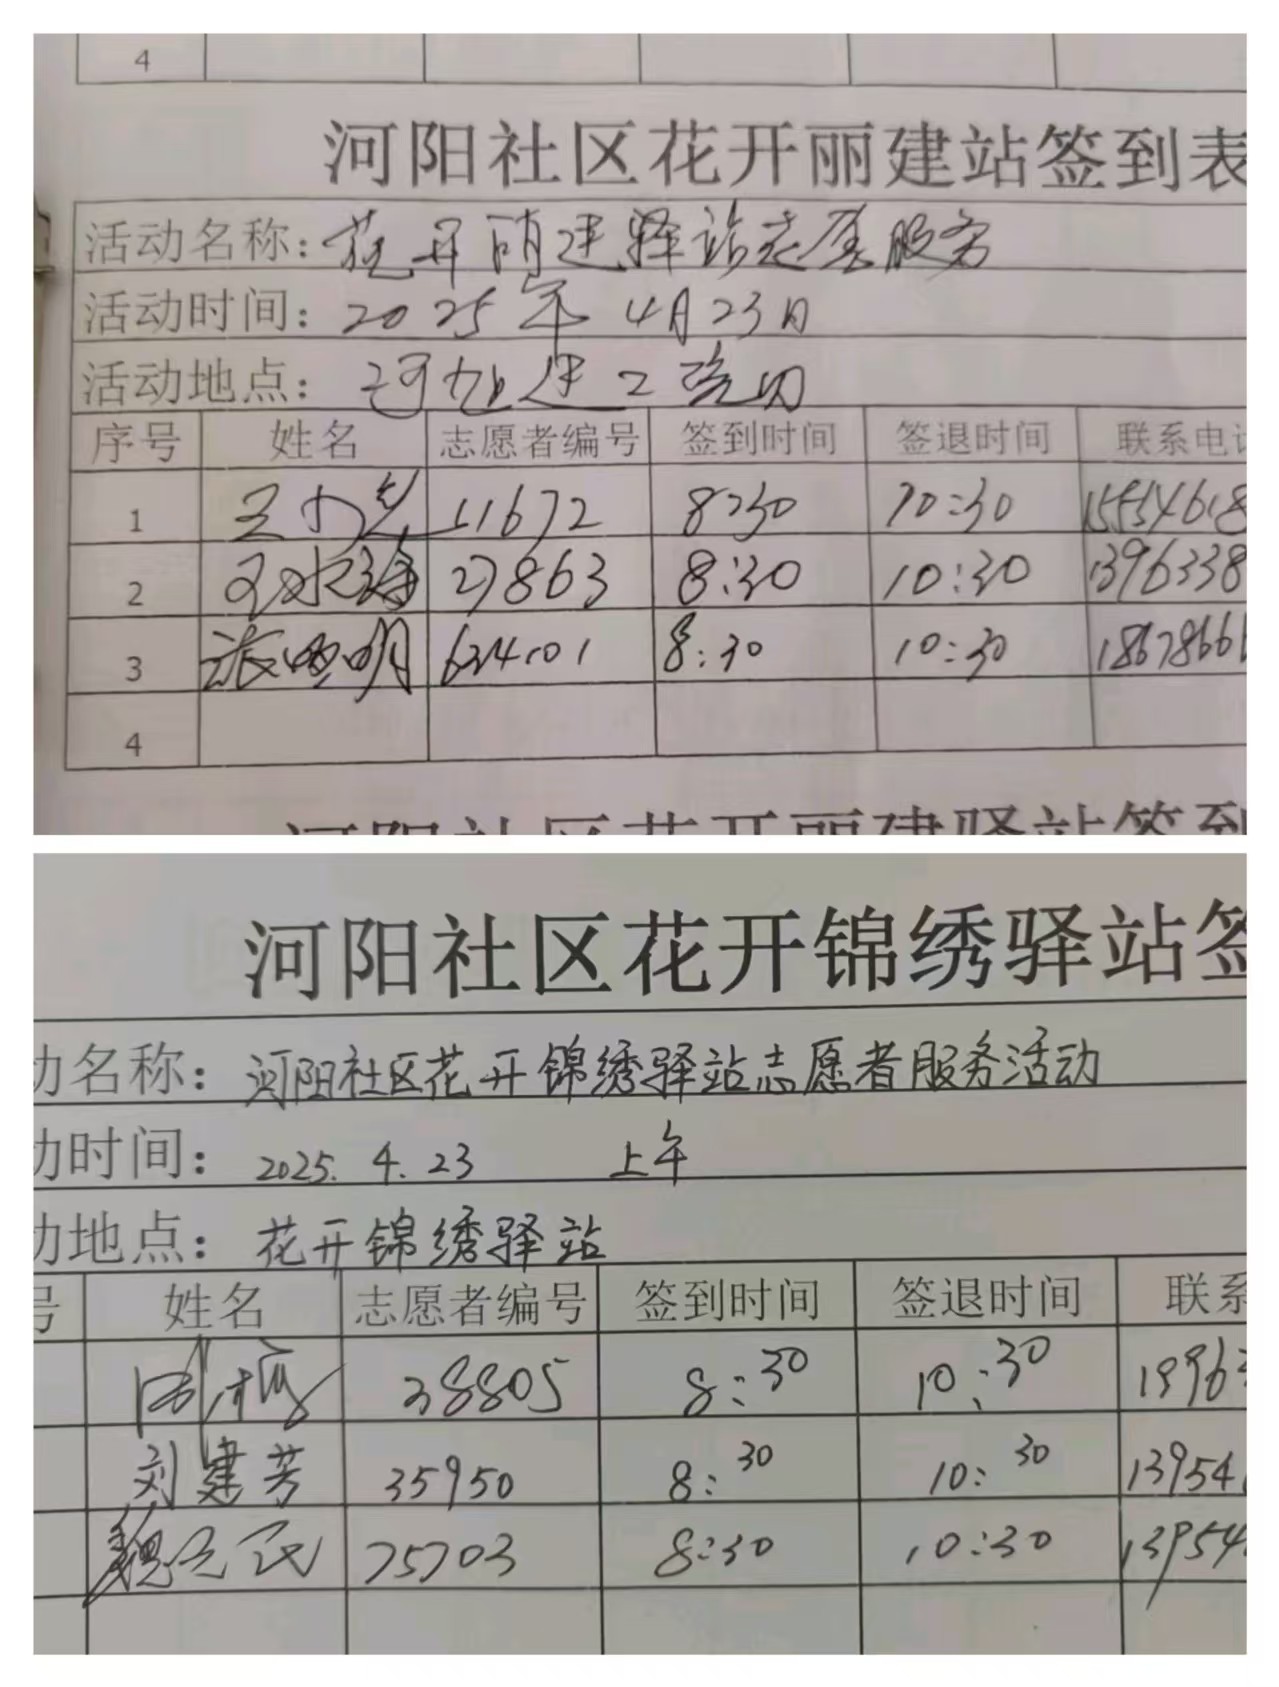 4
河阳社区花开丽建站签到表
活动名称：花开丽建驿站志愿服务
活动时间：2025年4月23日
活动地点：河阳建工
序号 姓名 志愿者编号 签到时间 签退时间 联系电话
1 11672 8:30 10:30 15554618
2 27863 8:30 10:30 1396338
3 634101 8:30 10:30 1867866
4
河阳社区花开丽建驿站签到
河阳社区花开锦绣驿站签
动名称：河阳社区花开锦绣驿站志愿者服务活动
动时间：2025.4.23 上午
动地点：花开锦绣驿站
号 姓名 志愿者编号 签到时间 签退时间 联系
38805 8:30 10:30 1996
刘建芳 35950 8:30 10:30 13954
魏元民 75703 8:30 10:30 13954